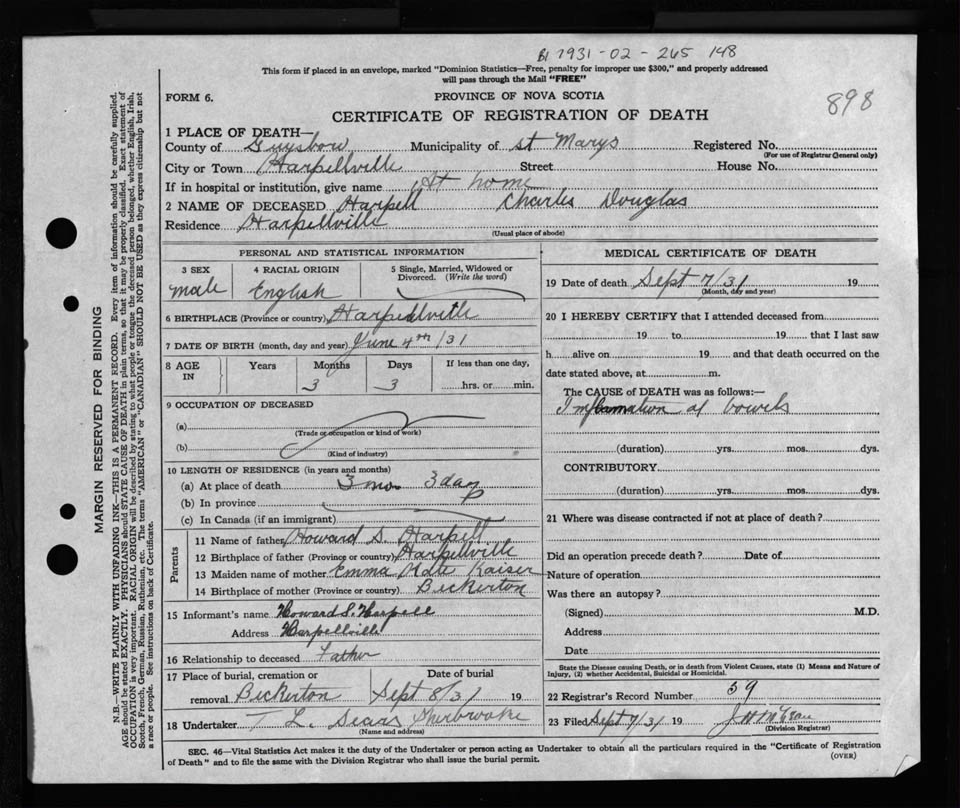 1931-02-265 148
This form if placed in an envelope, marked "Dominion Statistics—Free, penalty for improper use $300," and properly addressed
will pass through the Mail "FREE"
FORM 6.
PROVINCE OF NOVA SCOTIA
898
CERTIFICATE OF REGISTRATION OF DEATH
1 PLACE OF DEATH—
County of Guysboro Municipality of St Marys Registered No.
(For use of Registrar General only)
City or Town Harpellville Street House No.
If in hospital or institution, give name At home
2 NAME OF DECEASED Harpell Charles Douglas
Residence Harpellville
(Usual place of abode)
PERSONAL AND STATISTICAL INFORMATION
3 SEX
male
4 RACIAL ORIGIN
English
5 Single, Married, Widowed or
Divorced. (Write the word)
6 BIRTHPLACE (Province or country) Harpellville
7 DATE OF BIRTH (month, day and year) June 4th/31
8 AGE
IN
Years
Months
3
Days
3
If less than one day,
hrs. or min.
9 OCCUPATION OF DECEASED
(a)
(Trade or occupation or kind of work)
(b)
(Kind of industry)
10 LENGTH OF RESIDENCE (in years and months)
(a) At place of death 3 mos 3 days
(b) In province
(c) In Canada (if an immigrant)
Parents
11 Name of father Howard S. Harpell
12 Birthplace of father (Province or country) Harpellville
13 Maiden name of mother Emma Kate Kaiser
14 Birthplace of mother (Province or country) Beckerton
15 Informant's name Howard S. Harpell
Address Harpellville
16 Relationship to deceased Father
17 Place of burial, cremation or
removal Beckerton
Date of burial
Sept 8/31 19
18 Undertaker T L. Sears Sherbrooke
(Name and address)
MEDICAL CERTIFICATE OF DEATH
19 Date of death Sept 7/31 19
(Month, day and year)
20 I HEREBY CERTIFY that I attended deceased from
19 to 19 that I last saw
h alive on 19 and that death occurred on the
date stated above, at m.
The CAUSE OF DEATH was as follows:—
Inflamation of bowels
(duration) yrs. mos. dys.
CONTRIBUTORY
(duration) yrs. mos. dys.
21 Where was disease contracted if not at place of death?
Did an operation precede death? Date of
Nature of operation
Was there an autopsy?
(Signed) M.D.
Address
Date
State the Disease causing Death, or in death from Violent Causes, state (1) Means and Nature of
Injury, (2) whether Accidental, Suicidal or Homicidal.
22 Registrar's Record Number 59
23 Filed Sept 7/31 19
(Division Registrar)
SEC. 46—Vital Statistics Act makes it the duty of the Undertaker or person acting as Undertaker to obtain all the particulars required in the "Certificate of Registration
of Death" and to file the same with the Division Registrar who shall issue the burial permit.
(OVER)
MARGIN RESERVED FOR BINDING
N.B.—WRITE PLAINLY WITH UNFADING INK—THIS IS A PERMANENT RECORD. Every item of information should be carefully supplied.
AGE should be stated EXACTLY. PHYSICIANS should STATE CAUSE OF DEATH in plain terms, so that it may be properly classified. Exact statement of
OCCUPATION is very important. RACIAL ORIGIN will be described by stating to what people or tongue the deceased person belonged, whether English, Irish,
Scotch, French, German, Russian, Ruthenian, etc. The terms "AMERICAN" or "CANADIAN" SHOULD NOT BE USED as they express citizenship but not
a race or people. See instructions on back of Certificate.